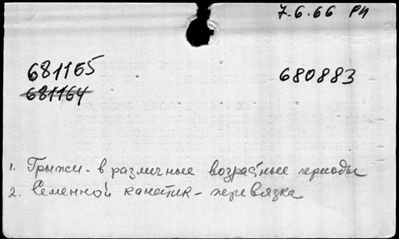 7-6-66 РИ
681165 680883
681164
1. Грыжи - в различные возрастные периоды
2. Семенной канатик - перевязка